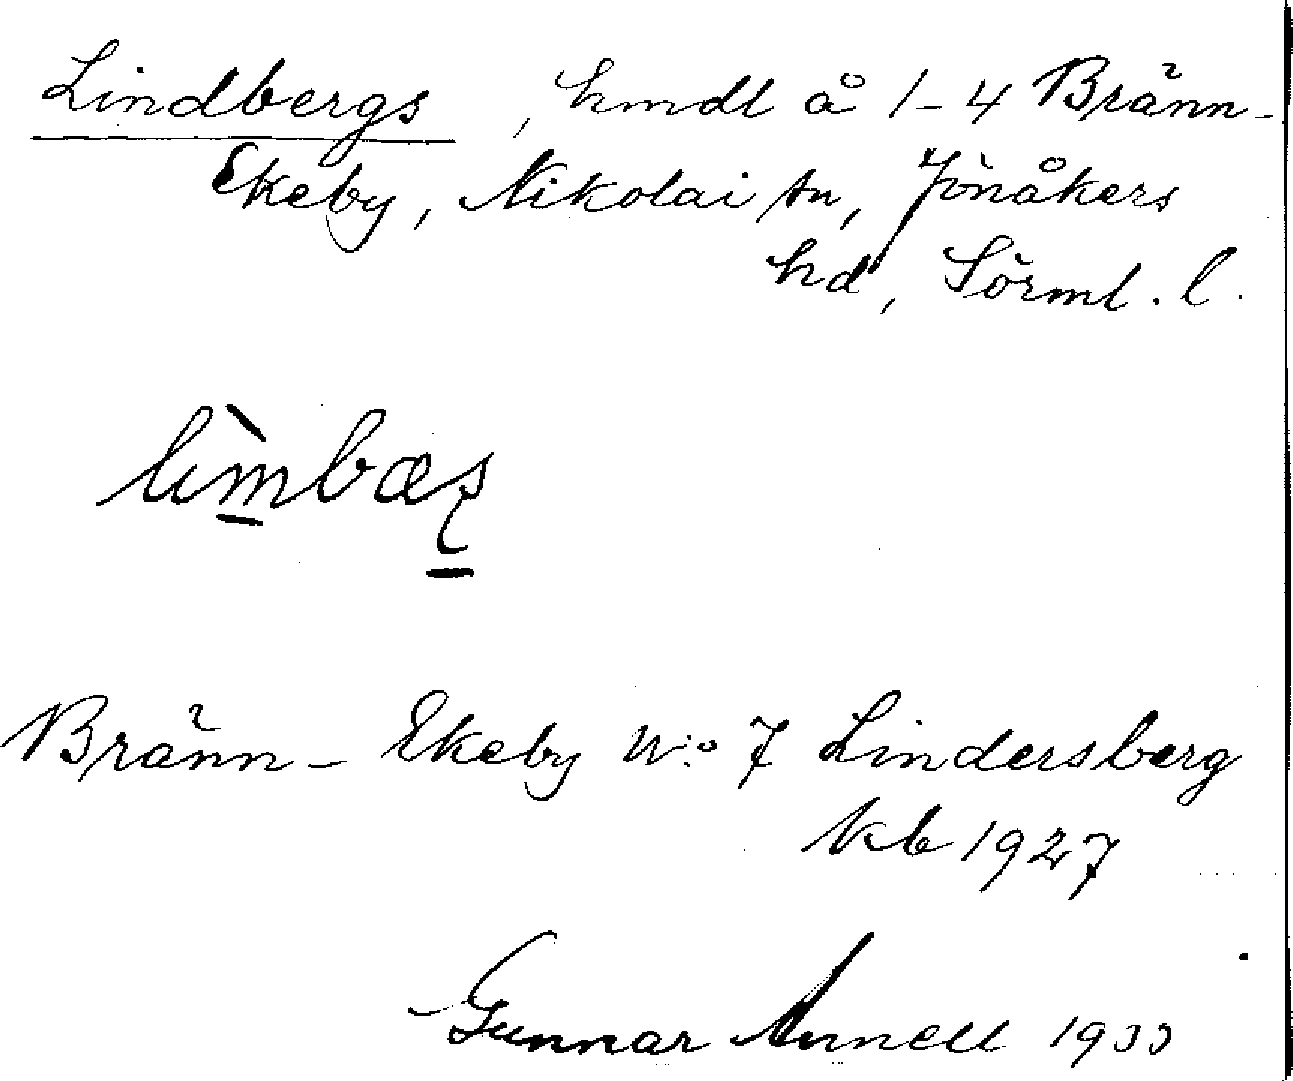 Lindbergs, hmdl å 1-4 Bränn-
Ekeby, Nikolai sn, Jönåkers
hd, Sörml. l.
Bränn-Ekeby N:o 7 Lindersberg
kb 1927
Gunnar Annell 1933